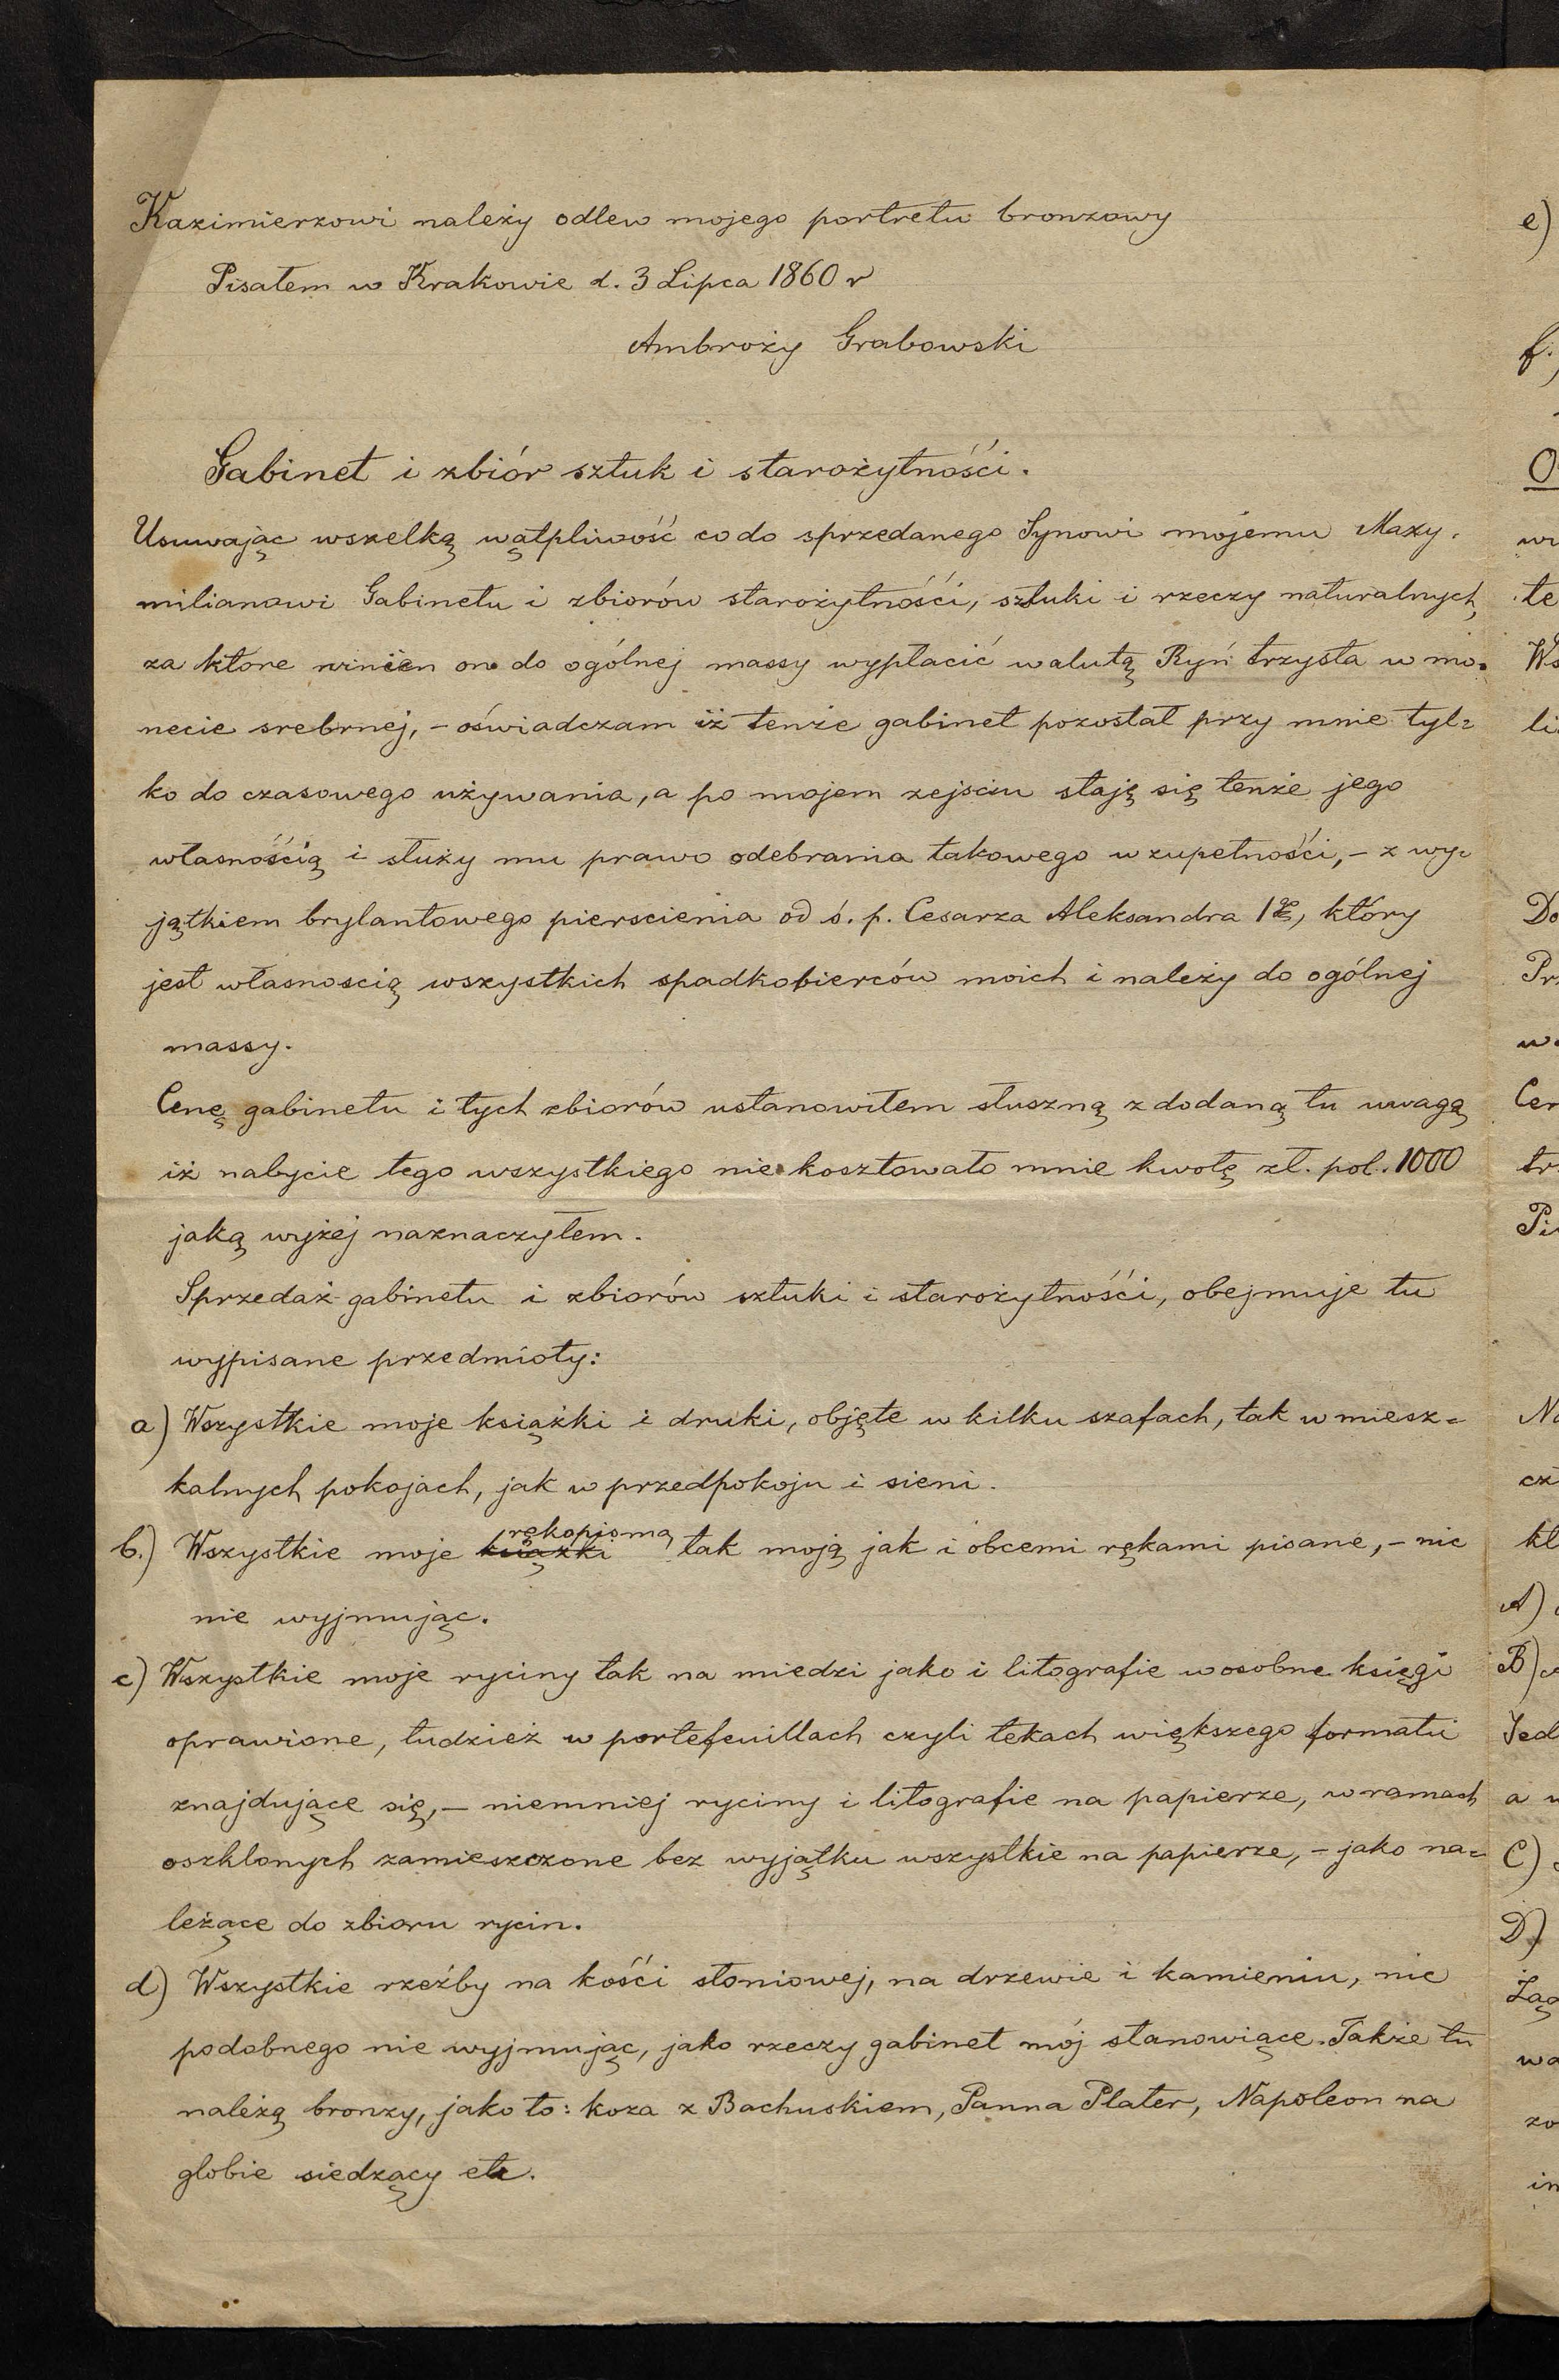 Kazimierzowi należy odlew mojego portretu bronzowy
Pisałem w Krakowie d. 3 Lipca 1860 r
Ambroży Grabowski
Gabinet i zbiór sztuk i starożytnośći.
Usuwając wszelką wątpliwość codo sprzedanego Synowi mojemu Maxy-
milianowi Gabinetu i zbiorów starożytnośći, sztuki i rzeczy naturalnych,
za ktore winien on do ogólnej massy wypłacić walutą Ryń trzysta w mo-
necie srebrnej, – oświadczam iż tenże gabinet pozostał przy mnie tyl=
ko do czasowego używania, a po mojem zejsciu staję się tenże jego
własnośćią i służy mu prawo odebrania takowego w zupełnośći, – z wy=
jątkiem brylantowego pierscienia od ś. p. Cesarza Aleksandra 1go, który
jest własnoscią wszystkich spadkobierców moich i należy do ogólnej
massy.
Cenę gabinetu i tych zbiorów ustanowiłem słuszną z dodaną tu uwagą
iż nabycie tego wszystkiego nie kosztowało mnie kwotę zł. pol. 1000
jaką wyżej naznaczyłem.
Sprzedaż gabinetu i zbiorów sztuki i starożytnośći, obejmuje tu
wypisane przedmioty:
a) Wszystkie moje książki i druki, objęte w kilku szafach, tak w miesz=
kalnych pokojach, jak w przedpokoju i sieni.
b.) Wszystkie moje książki rękopisma tak moją jak i obcemi rękami pisane, – nic
nie wyjmując.
c) Wszystkie moje ryciny tak na miedzi jako i litografie w osobne księgi
oprawione, tudzież w portefeuillach czyli tekach większego formatu
znajdujące się, – niemniej ryciny i litografie na papierze, w ramach
oszklonych zamieszczone bez wyjątku wszystkie na papierze, – jako na=
leżące do zbioru rycin.
d) Wszystkie rzeźby na kośći słoniowej, na drzewie i kamieniu, nic
podobnego nie wyjmując, jako rzeczy gabinet mój stanowiące. Także tu
należą bronzy, jako to: koza z Bachuskiem, Panna Plater, Napoleon na
globie siedzący etc.
e)
f.)
te
A)
B)
C)
D)